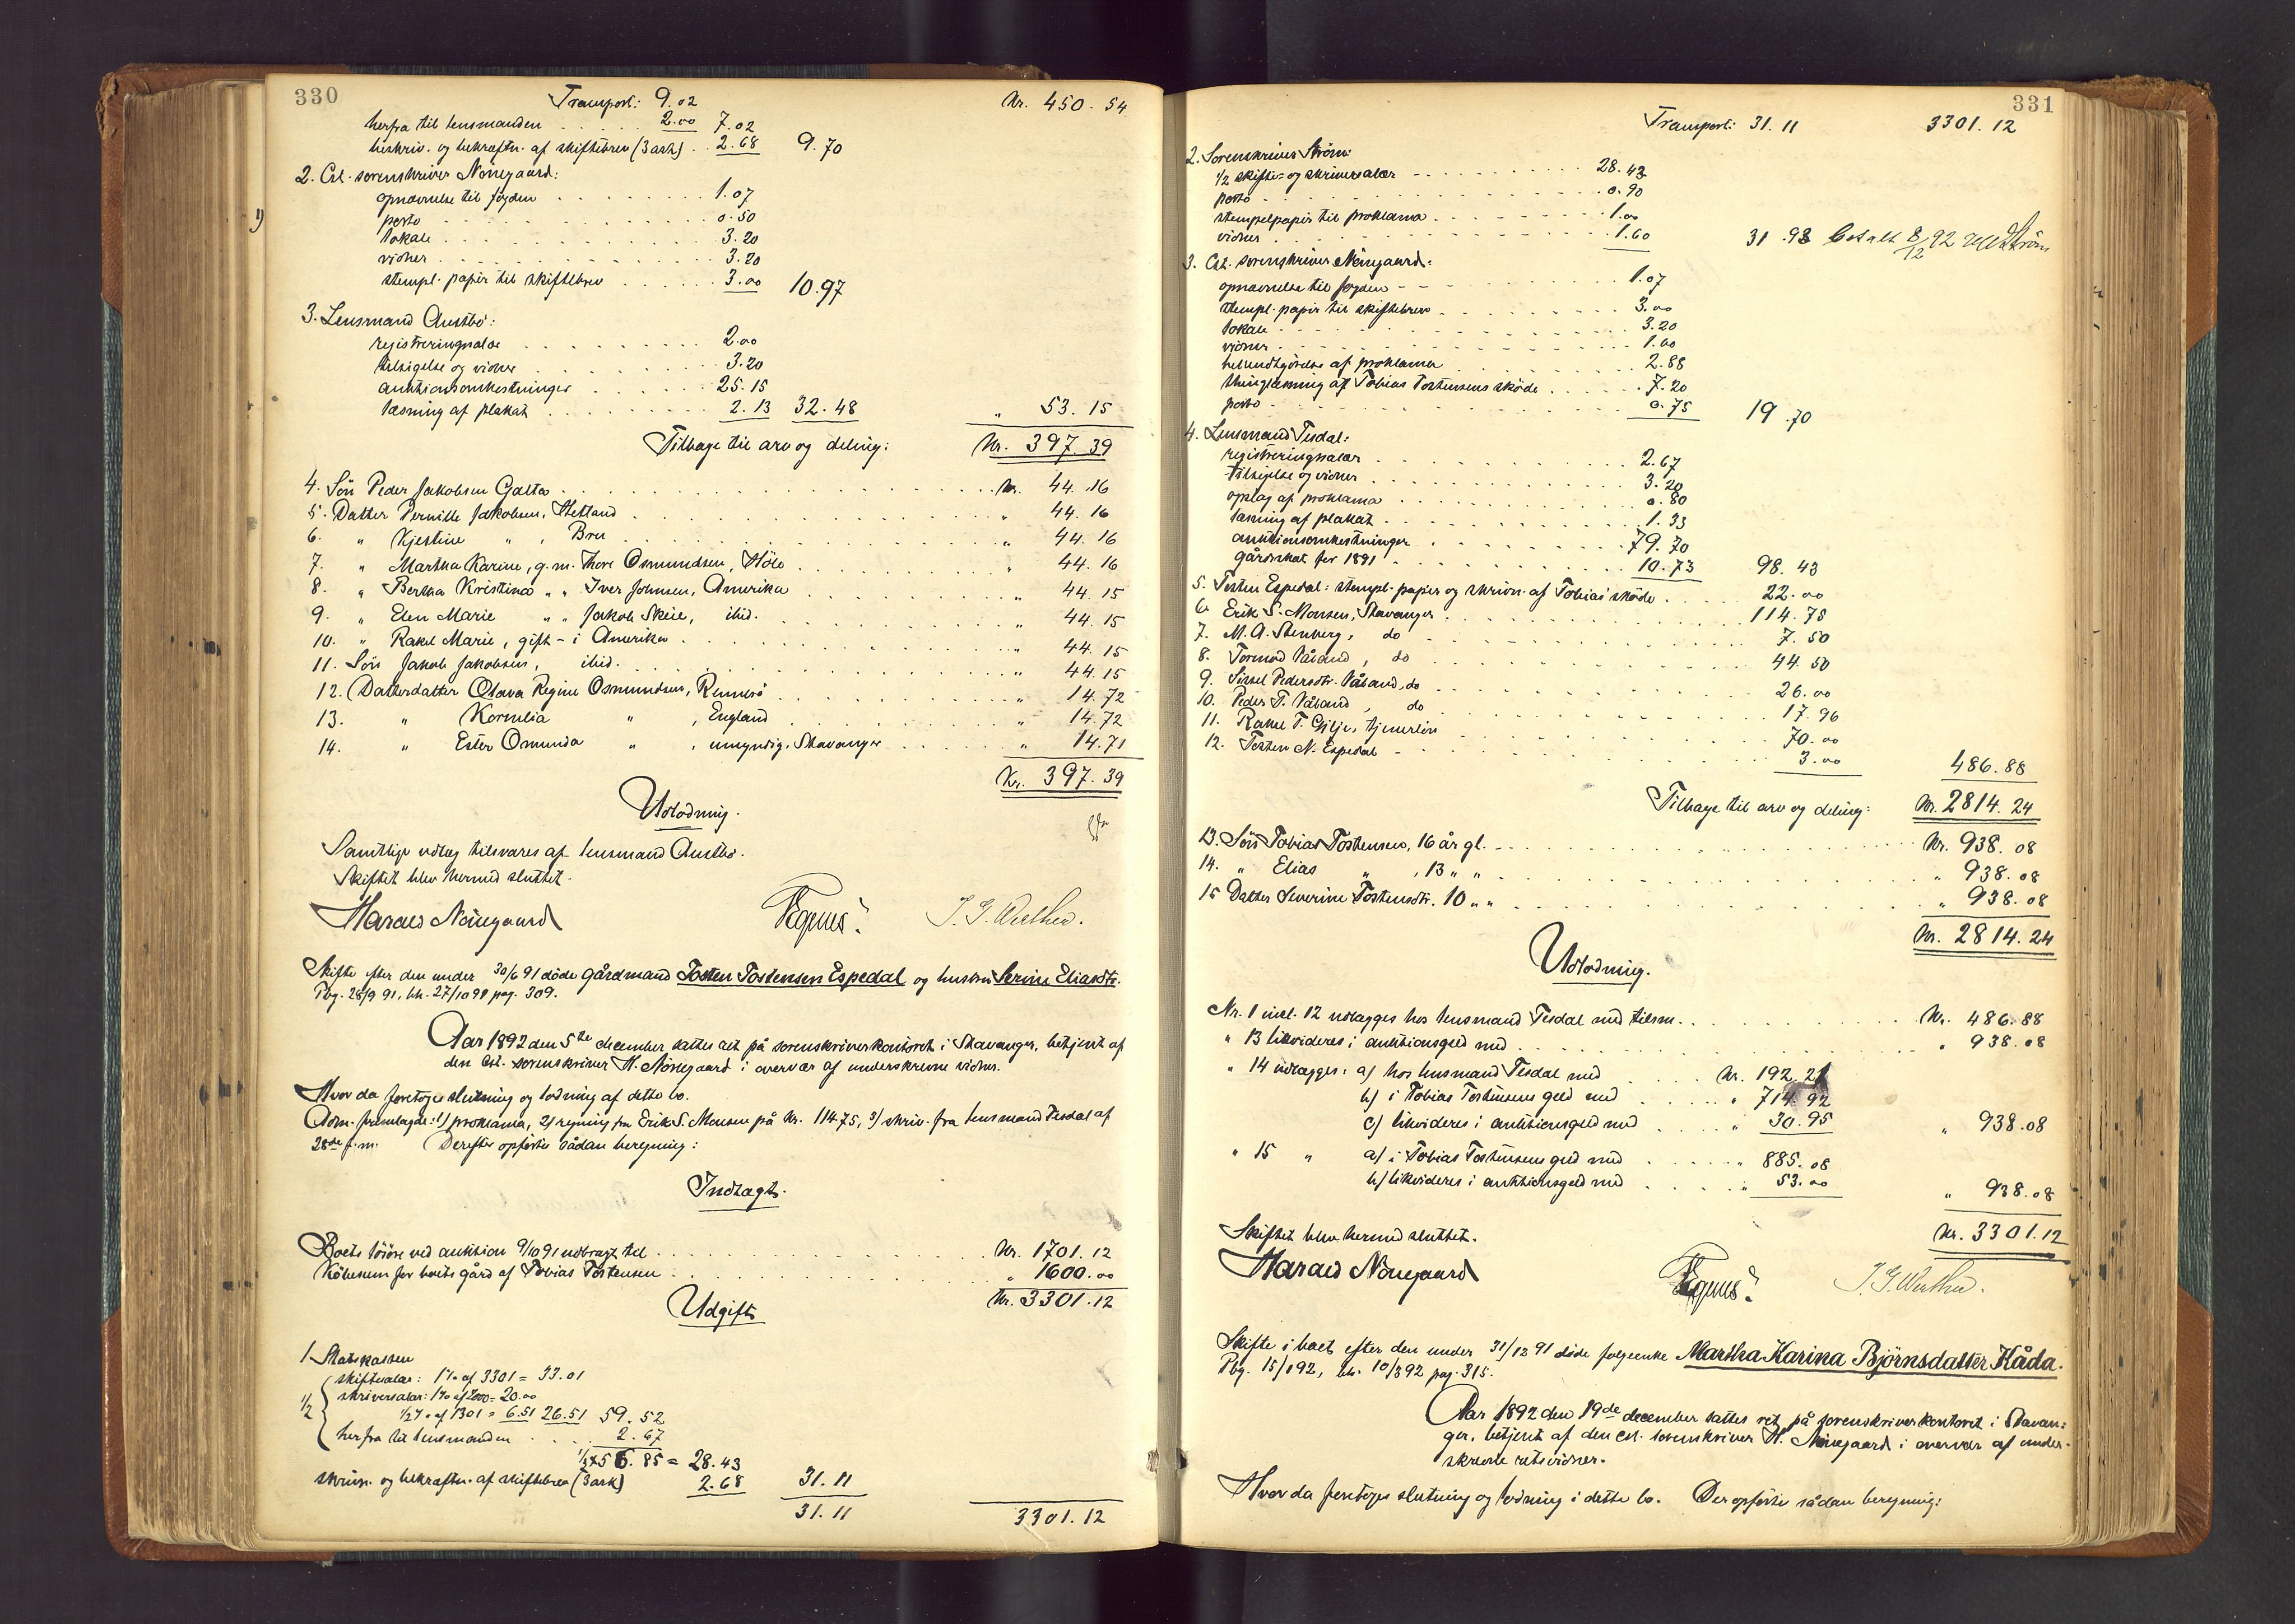 330
Transport: 9.02 Kr. 450.54
herfra til lensmanden 2.00 7.02
beskriv. og bekræftn. af skiftebrev (3 ark) 2.68 9.70
2. Cst. sorenskriver Nörregaard:
opnævnelse til fogden 1.07
porto 0.50
lokale 3.20
vidner 3.20
stempl. papir til skiftebrev 3.00 10.97
3. Lensmand Austbö:
registreringsalær 2.00
tilsigelse og vidner 3.20
auktionsomkostninger 25.15
læsning af plakat 2.13 32.48 " 53.15
Tilbage til arv og deling: Kr. 397.39
4. Sön Peder Jakobsen Galta Kr. 44.16
5. Datter Pernille Jakobsen, Hetland " 44.16
6. " Kjestine " , Bru " 44.16
7. " Martha Karine, g.m. Thore Osmundsen, Hölo " 44.16
8. " Bertha Kristina " " Iver Johnsen, Amerika " 44.15
9. " Elen Marie " " Jakob Skeie, ibid. " 44.15
10. " Rakel Marie, gift - i Amerika " 44.15
11. Sön Jakob Jakobsen, ibid. " 44.15
12. Datterdatter Olava Regine Osmundsen, Rennesö " 14.72
13. " Kornelia " , England " 14.72
14. " Ester Osmunda " , umyndig, Stavanger " 14.71
Kr. 397.39
Udlodning.
Samtlige udlæg tilsvares af lensmand Austbö.
Skiftet blev hermed sluttet.
Harald Nörregaard J. G. Werther.
Skifte efter den under 30/6 91 döde gårdmand Tosten Tostensen Espedal og hustru Serine Eliasdtr.
Pbg. 28/9 91, bh. 27/10 91 pag. 309.
Aar 1892 den 5te december sattes ret på sorenskriverkontoret i Stavanger, betjent af
den cst. sorenskriver H. Nörregaard i overvær af underskrevne vidner.
Hvor da foretoges slutning og lodning af dette bo.
Adm. fremlagde: 1) proklama, 2) regning fra Erik S. Monsen på Kr. 114.75, 3) skriv. fra lensmand Tesdal af
28de f.m. Derefter opförtes sådan beregning:
Indtægt.
Boets lösöre ved auktion 9/10 91 udbragt til Kr. 1701.12
Köbesum for boets gård af Tobias Tostensen " 1600.00
Kr. 3301.12
Udgift
1. Statskassen
skiftesalær: 1% af 3301 = 33.01
1/2 skriversalær: 1% af 2000 = 20.00
1/2 % af 1301 = 6.51 26.51 59.52
herfra til lensmanden 2.67
1/2 x 56.85 = 28.43
skrivn. og bekræftn. af skiftebrev (3 ark) 2.68 31.11
31.11 3301.12
331
Transport: 31.11 3301.12
2. Sorenskriver Ström:
1/2 skifte- og skriversalær 28.43
porto 0.90
stempelpapir til proklama 1.00
vidner 1.60 31.93 betalt 8/12 92 Ström
3. Cst. sorenskriver Nörregaard:
opnævnelse til fogden 1.07
stempl. papir til skiftebrev 3.00
lokale 3.20
vidner 1.60
bekendtgjörelse af proklama 2.88
thinglæsning af Tobias Tostensens sköde 7.20
porto 0.75 19.70
4. Lensmand Tesdal:
registreringsalær 2.67
tilsigelse og vidner 3.20
opslag af proklama 0.80
læsning af plakat 1.33
auktionsomkostninger 79.70
gårdskat for 1891 10.73 98.43
5. Tosten Espedal: stempl. papir og skrivn. af Tobias' sköde 22.00
6. Erik S. Monsen, Stavanger 114.75
7. M. A. Stenberg, do 7.50
8. Tormod Våland, do 44.50
9. Sissel Pedersdtr. Våland, do 26.00
10. Peder T. Våland, do 17.96
11. Rakel T. Gilje, tjenerlön 70.00
12. Tosten N. Espedal 3.00 486.88
Tilbage til arv og deling: Kr. 2814.24
13. Sön Tobias Tostensen, 16 år gl. Kr. 938.08
14. " Elias " , 13 " " " 938.08
15 Datter Severine Tostensdtr. 10 " " " 938.08
Kr. 2814.24
Udlodning.
Nr. 1 incl. 12 udlægges hos lensmand Tesdal med tilsm. Kr. 486.88
" 13 likvideres i auktionsgjeld med " 938.08
" 14 udlægges: a) hos lensmand Tesdal med Kr. 192.21
b) i Tobias Tostensens gjeld med " 714.92
c) likvideres i auktionsgjeld med " 30.95 " 938.08
" 15 " a) i Tobias Tostensens gjeld med " 885.08
b) likvideres i auktionsgjeld med " 53.00 " 938.08
Kr. 3301.12
Skiftet blev hermed sluttet.
Harald Nörregaard J. G. Werther.
Skifte i boet efter den under 31/12 91 döde folgeenke Martha Karina Björnsdatter Kåda.
Pbg. 15/1 92, bh. 10/3 92 pag. 315.
Aar 1892 den 19de december sattes ret på sorenskriverkontoret i Stavan-
ger, betjent af den cst. sorenskriver H. Nörregaard i overvær af under-
skrevne retsvidner.
Hvor da foretoges slutning og lodning i dette bo. Der opförtes sådan beregning: